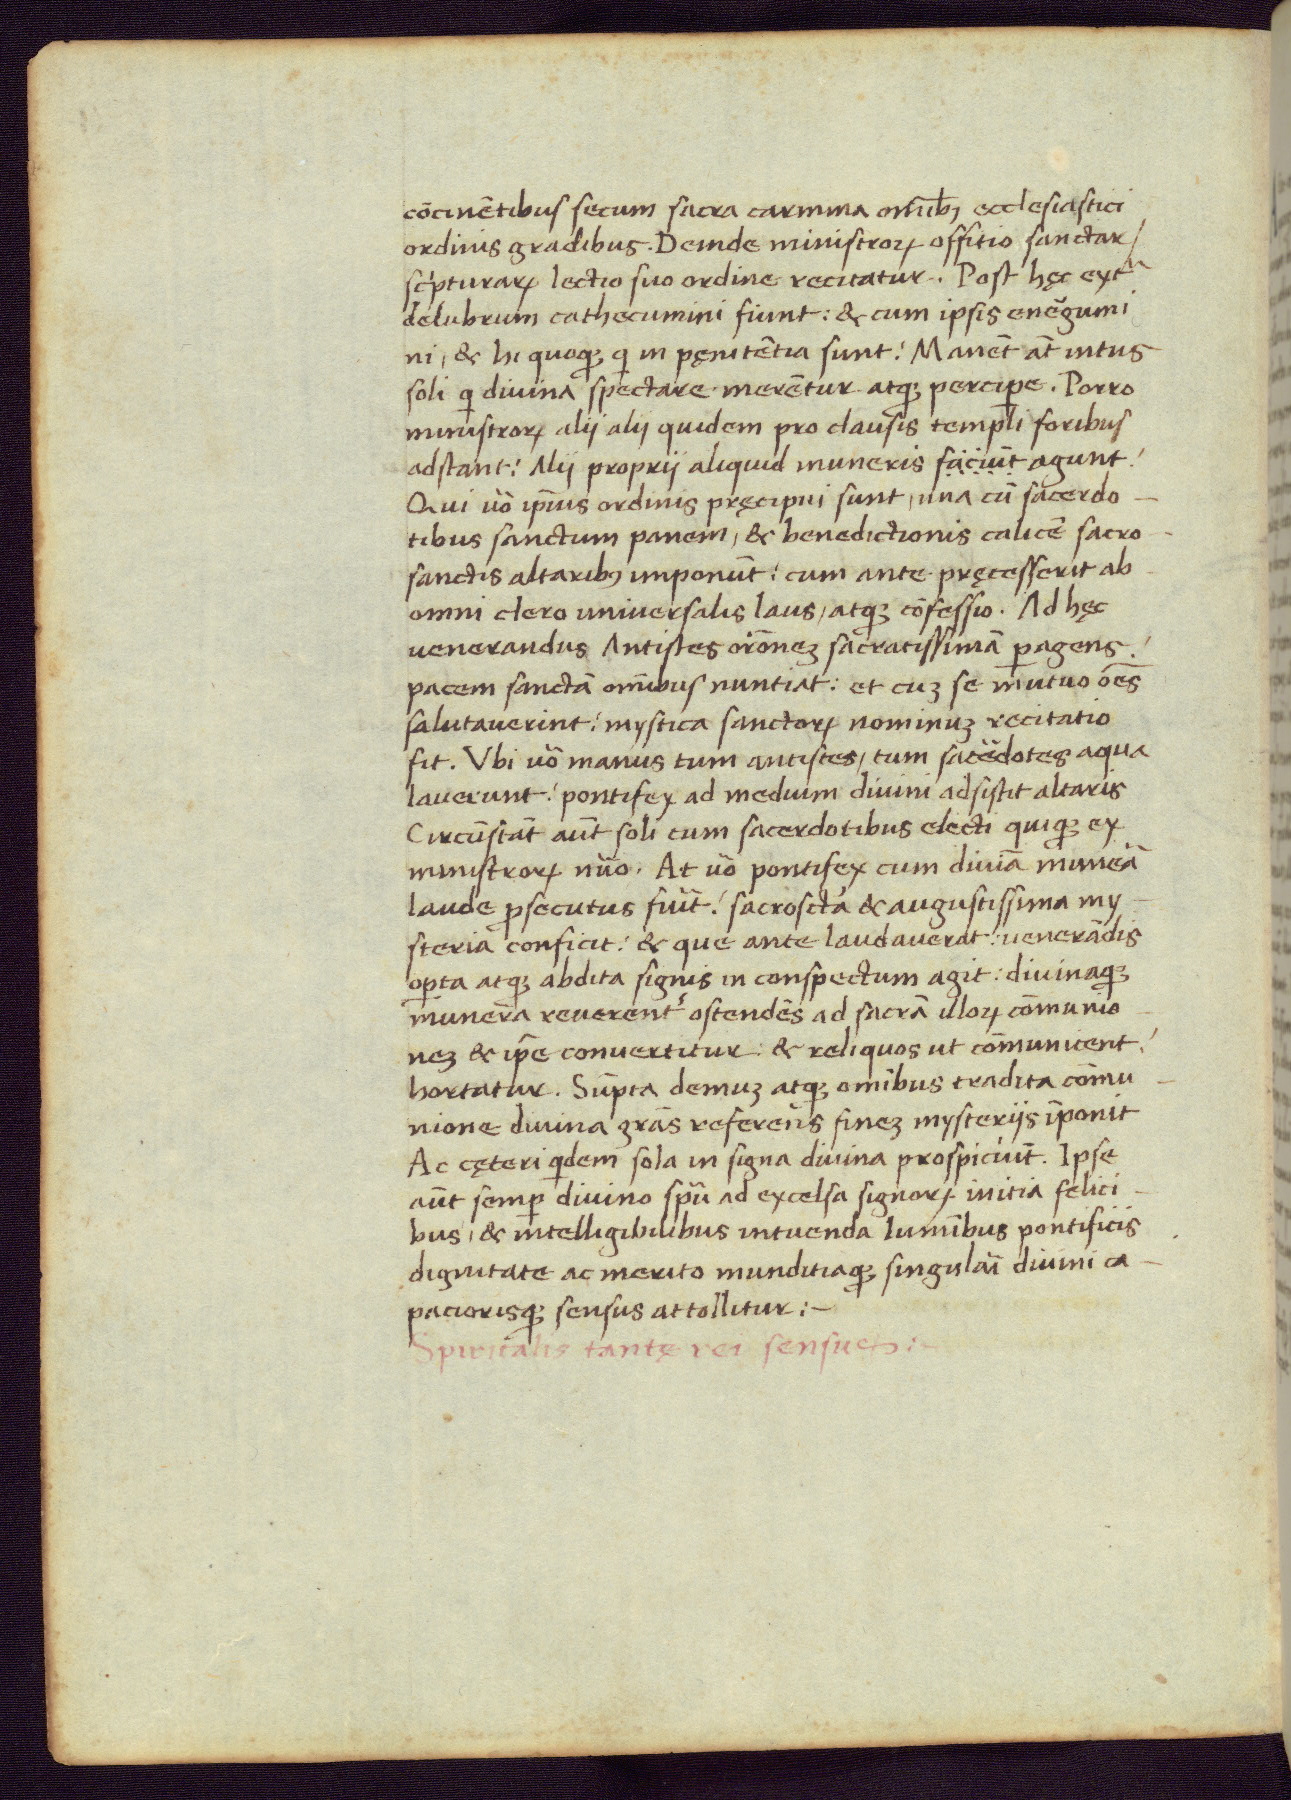 cōcinētibus secum sacra carmina omībꝫ ecclesiastici
ordinis gradibus. Deinde ministroꝝ offitio sanctar/
scͥpturaꝝ lectio suo ordine recitatur. Post hęc ext
delubrum cathecumini fiunt: & cum ipsis enēgumi
ni, & hi quoqꝫ qͥ in pęnitētia sunt: Manēt āt intus
soli qͥ divina spectare merētur atqꝫ percipe. Porro
ministroꝝ alij alij quidem pro clausis templi foribus
adstant: Alij proprij aliquid muneris faciūt agunt:
Qui ūo ip̄ius ordinis pręcipui sunt, una cū sacerdo-
tibus sanctum panem, & benedictionis calicē sacro-
sanctis altaribꝫ imponūt: cum ante pręcesserit ab
omni clero universalis laus, atqꝫ cōfessio. Ad hęc
uenerandus Antistes orōneꝫ sacratissimā ꝑagens:
pacem sanctā omībus nuntiat: et cuꝫ se mutuo oēs
salutauerint: mystica sanctoꝝ nominuꝫ recitatio
fit. Vbi ūo manus tum antistes, tum sacēdotes aqua
lauerunt: pontifex ad medium divini adsistit altaris
Circūstāt aūt soli cum sacerdotibus electi quiqꝫ ex
ministroꝝ nūo. At ūo pontifex cum diuīa muneā
laude ꝓsecutus fuīt: sacrosctā & augustissima my-
steria conficit: & que ante laudauerat: uenerādis
opta atqꝫ abdita signis in conspectum agit: divinaqꝫ
munera reuerentͬ ostendēs ad sacrā illoꝝ cōmunio-
neꝫ & ip̄e conuertitur: & reliquos ut cōmunicent:
hortatur. Sūpta demuꝫ atqꝫ omībus tradita cōmu-
nione divina grās referēs fineꝫ mysterijs īponit
Ac cęteri qͥdem sola in signa divina prospiciūt. Ipse
aūt semꝑ divino spū ad excelsa signoꝝ initia felici-
bus, & intelligibilibus intuenda lumībus pontificis
dignitate ac merito munditiaqꝫ singulaī divini ca-
paciorisqꝫ sensus attollitur:-
Spiritalis tantę rei sensus:-